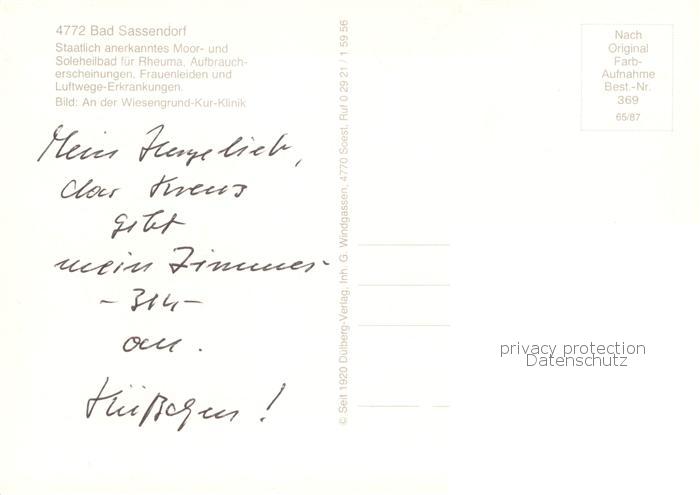 4772 Bad Sassendorf
Staatlich anerkanntes Moor- und
Soleheilbad für Rheuma, Aufbrauch-
erscheinungen, Frauenleiden und
Luftwege-Erkrankungen.
Bild: An der Wiesengrund-Kur-Klinik
Mein
das Kreuz
gibt
mein Zimmer
- 314 -
an.
Küßchen!
© Seit 1920 Dülberg-Verlag, Inh. G. Windgassen, 4770 Soest, Ruf 0 29 21 / 1 59 56
Nach
Original
Farb-
Aufnahme
Best.-Nr.
369
65/87
privacy protection
Datenschutz